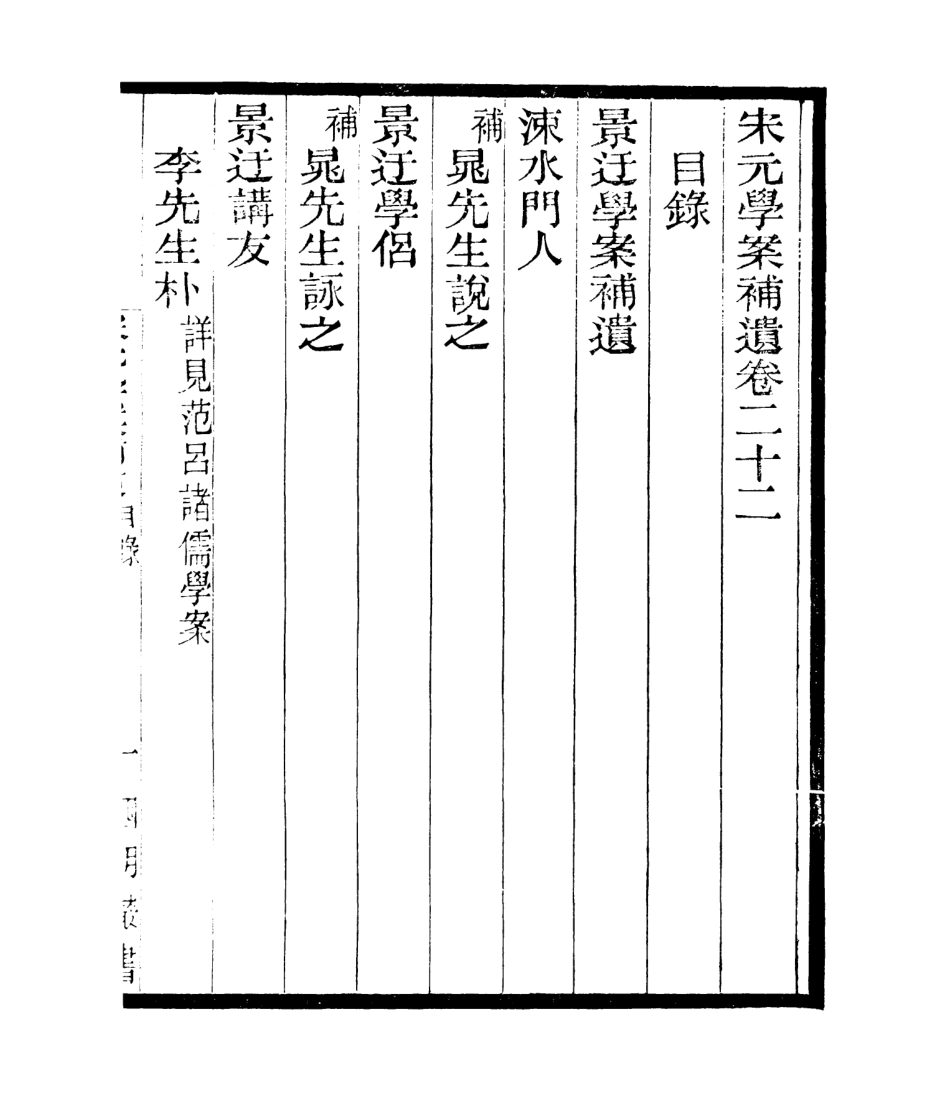 宋元學案補遺卷二十二
目錄
景迂學案補遺
涑水門人
補晁先生說之
景迂學侶
補晁先生詠之
景迂講友
李先生朴詳見范呂諸儒學案
目錄
一
四明叢書